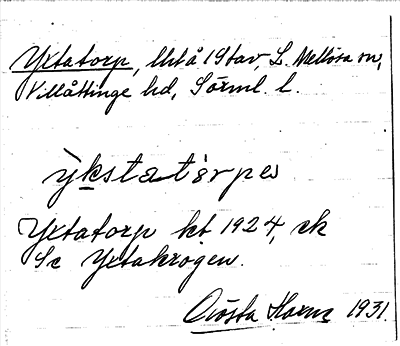 Yxtatorp, Utå 1 Stav, L. Mellösa sn,
Villåttinge hd, Sörml. l.
ỳkstatòrpəs
Yxtatorp kt 1924, ek
Se Yxtakrogen.
Gösta Harne 1931.